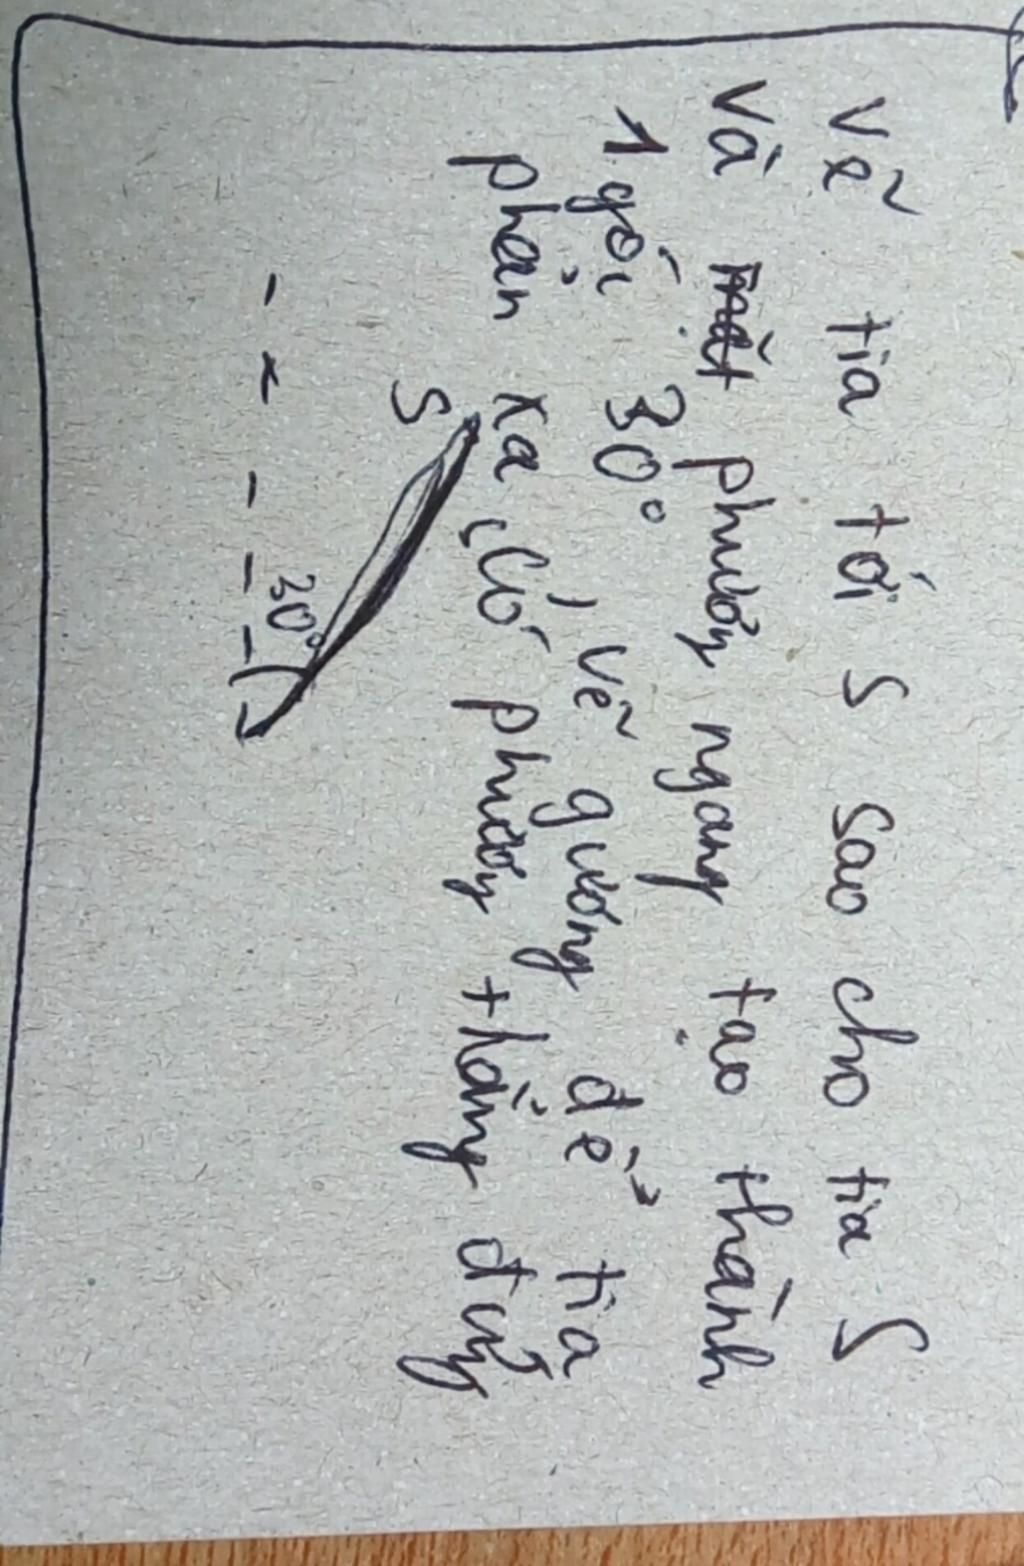 Vẽ tia tới S sao cho tia S
Và phương ngang tạo thành
1 góc 30°, vẽ gương để tia
phản xạ có phương thẳng đứng
S
30°